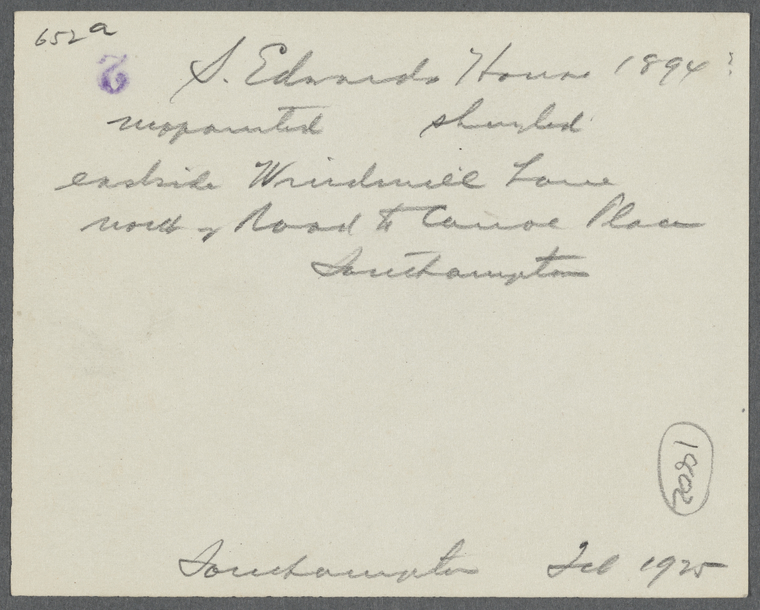 652a
2
S. Edwards House 1894?
unpainted shingled
eastside Windmill Lane
north of Road to Canoe Place
Southampton
1802
Southampton Feb 1925